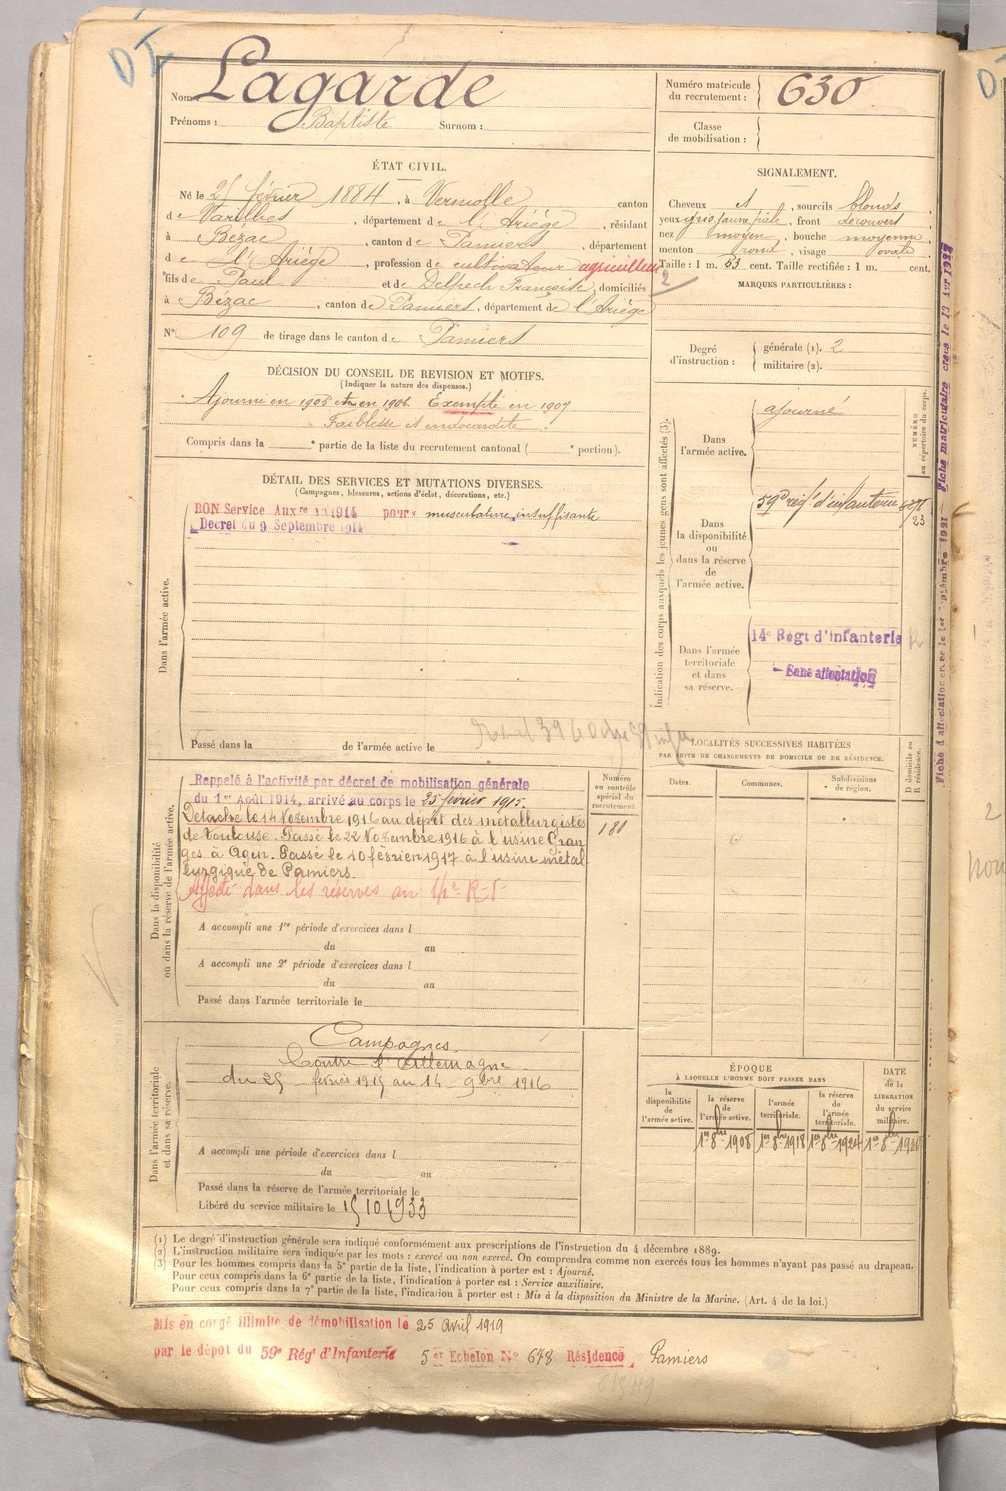 Nom Lagarde
Prénoms : Baptiste Surnom :
Numéro matricule
du recrutement : 630
Classe
de mobilisation :
ÉTAT CIVIL.
Né le 25 février 1884, à Verniolle canton
de Varilhes, département de l'Ariège, résidant
à Bézac, canton de Pamiers, département
de l'Ariège, profession de cultivateur agriculteur
fils de Paul et de Delpech Françoise, domiciliés
à Bézac, canton de Pamiers, département de l'Ariège
N° 109 de tirage dans le canton de Pamiers
DÉCISION DU CONSEIL DE REVISION ET MOTIFS.
(Indiquer la nature des dispenses.)
Ajourné en 1905 et en 1906. Exempté en 1907
Faiblesse et endocardite
Compris dans la e partie de la liste du recrutement cantonal ( e portion).
SIGNALEMENT.
Cheveux et, sourcils blonds,
yeux gris jaune pâle, front découvert
nez moyen, bouche moyenne
menton rond, visage ovale
Taille : 1 m. 53 cent. Taille rectifiée : 1 m. cent.
2
MARQUES PARTICULIÈRES :
Degré
d'instruction :
générale (1). 2
militaire (2).
DÉTAIL DES SERVICES ET MUTATIONS DIVERSES.
(Campagnes, blessures, actions d'éclat, décorations, etc.)
Dans l'armée active.
BON Service Aux re 1914 pour musculature insuffisante
Décret du 9 Septembre 1914
Passé dans la de l'armée active le
Indication des corps auxquels les jeunes gens sont affectés (3).
NUMÉRO
au répertoire du corps.
Dans
l'armée active.
ajourné
Dans
la disponibilité
ou
dans la réserve
de
l'armée active.
59e rég. d'infanterie
23
Dans l'armée
territoriale
et dans
sa réserve.
14e Régt d'infanterie
Sans affectation
Fiche matricule
LOCALITÉS SUCCESSIVES HABITÉES
PAR SUITE DE CHANGEMENTS DE DOMICILE OU DE RÉSIDENCE.
Dates. Communes. Subdivisions
de région.
D domicile ou
R résidence.
Dans la disponibilité
ou dans la réserve de l'armée active.
Rappelé à l'activité par décret de mobilisation générale
du 1er Août 1914, arrivé au corps le 25 février 1915.
Détaché le 14 Novembre 1916 au dépôt des métallurgistes
de Toulouse. Passé le 22 Novembre 1916 à l'usine Gran
ges à Agen. Passé le 10 février 1917 à l'usine métal
lurgique de Pamiers.
Affecté dans les réserves au 14e R.I
Numéro
au contrôle
spécial du
recrutement
180
A accompli une 1re période d'exercices dans l
du au
A accompli une 2e période d'exercices dans l
du au
Passé dans l'armée territoriale le
Dans l'armée territoriale
et dans sa réserve.
Campagnes
Contre l'Allemagne
du 25 février 1915 au 14 9bre 1916
A accompli une période d'exercices dans l
du au
Passé dans la réserve de l'armée territoriale le
Libéré du service militaire le 15 10 1933
ÉPOQUE
À LAQUELLE L'HOMME DOIT PASSER DANS
la
disponibilité
de
l'armée active.
la réserve
de
l'armée active.
l'armée
territoriale.
la réserve
de
l'armée
territoriale.
DATE
de la
LIBÉRATION
du service
militaire.
1er 8bre 1908 1er 8bre 1918 1er 8bre 1924 1er 8bre 1930
(1) Le degré d'instruction générale sera indiqué conformément aux prescriptions de l'instruction du 4 décembre 1889.
(2) L'instruction militaire sera indiquée par les mots : exercé ou non exercé. On comprendra comme non exercés tous les hommes n'ayant pas passé au drapeau.
(3) Pour les hommes compris dans la 5e partie de la liste, l'indication à porter est : Ajourné.
Pour ceux compris dans la 6e partie de la liste, l'indication à porter est : Service auxiliaire.
Pour ceux compris dans la 7e partie de la liste, l'indication à porter est : Mis à la disposition du Ministre de la Marine. (Art. 4 de la loi.)
Mis en congé illimité de démobilisation le 25 Avril 1919
par le dépôt du 59e Régt d'Infanterie 5er Echelon N° 678 Résidence Pamiers